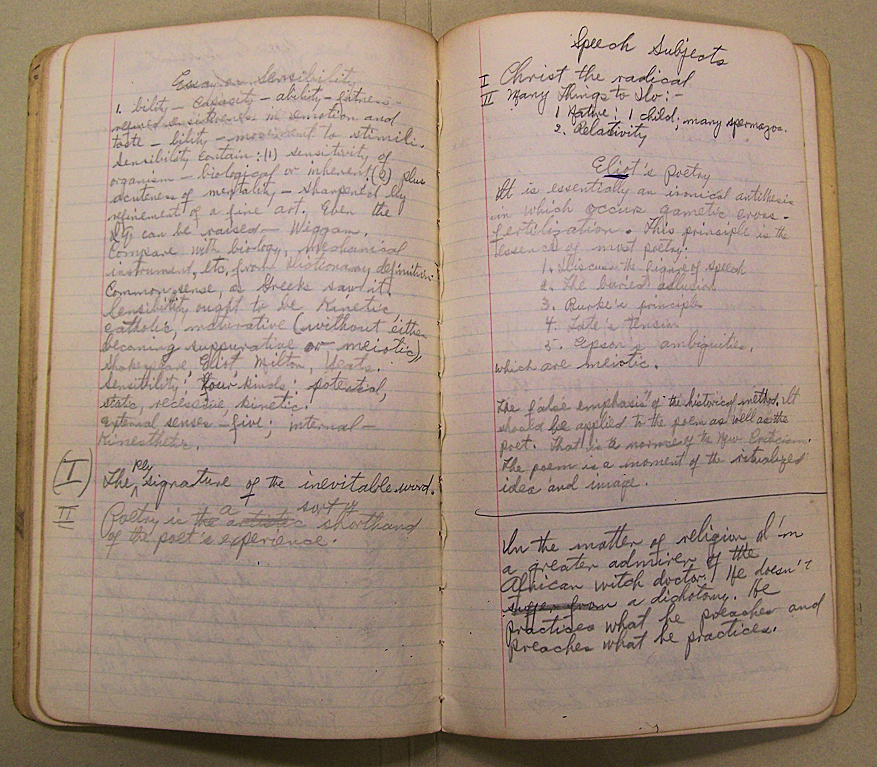 Essay on Sensibility
1. bility — capacity — ability — fitness —
refined sensitiveness in emotion and
taste — bility — movement to stimili.
Sensibility contain: (1) sensitivity of
organism — biological or inherent; (2) plus
acuteness of mentality — sharpened by
refinement of a fine art. Even the
IQ can be raised — Wiggam.
Compare with biology, mechanical
instrument, etc, from dictionary definition
Common sense, as Greeks saw it.
Sensibility ought to be Kinetic
catholic, maturative (without either
becoming suppurative or meiotic),
Shakespeare, Eliot, Milton, Yeats.
Sensibility: four kinds: potential,
static, recessive, kinetic.
External senses — five; internal —
Kinesthetic.
(I) The key signature of the inevitable word.
II Poetry is the artistic a sort of shorthand
of the poet's experience.
Speech Subjects
I Christ the radical
II Many Things to Do:-
1 Native: 1 child; many spermazoa.
2. Relativity
Eliot's Poetry
It is essentially an ironical antithesis
in which occur gametic cross-
fertilization. This principle is the
essence of most poetry.
1. Discuss the figure of speech
2. The buried allusion
3. Burke's principle
4. Tate's tension
5. Epson's ambiguities,
which are meiotic.
The false emphasis of the historical method. It
should be applied to the poem as well as the
poet. That is the norm of the New Criticism.
The poem is a moment of the ritualized
idea and image.
In the matter of religion I'm
a greater admirer of the
African witch doctor! He doesn't
suffer from a dichotomy. He
practices what he preaches and
preaches what he practices.